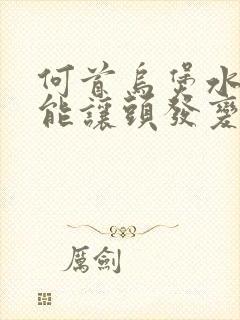 何首烏煲水
能讓頭發變
厲劍